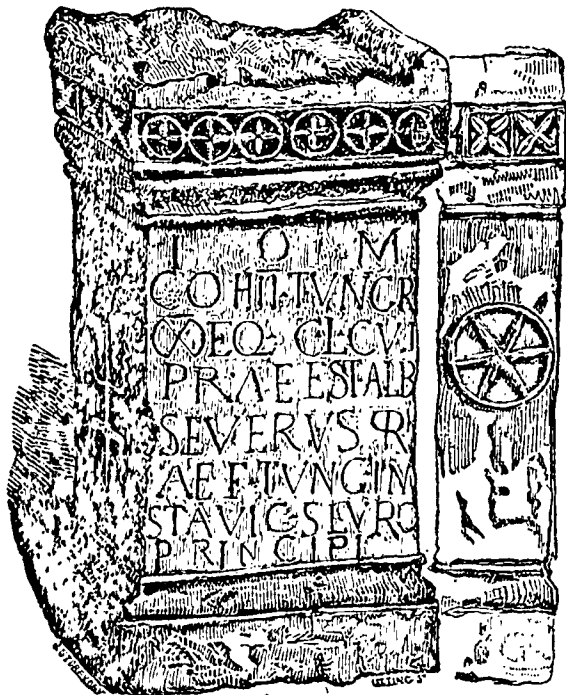 I O M
COH Ī̄Ī·TVNGR
∞ EQ· C·L·CVI
PRAEEST·ALB
SEVERVS PR
AEF·TVNG·IN
STA VIC·SEVRO
PRINCIPI